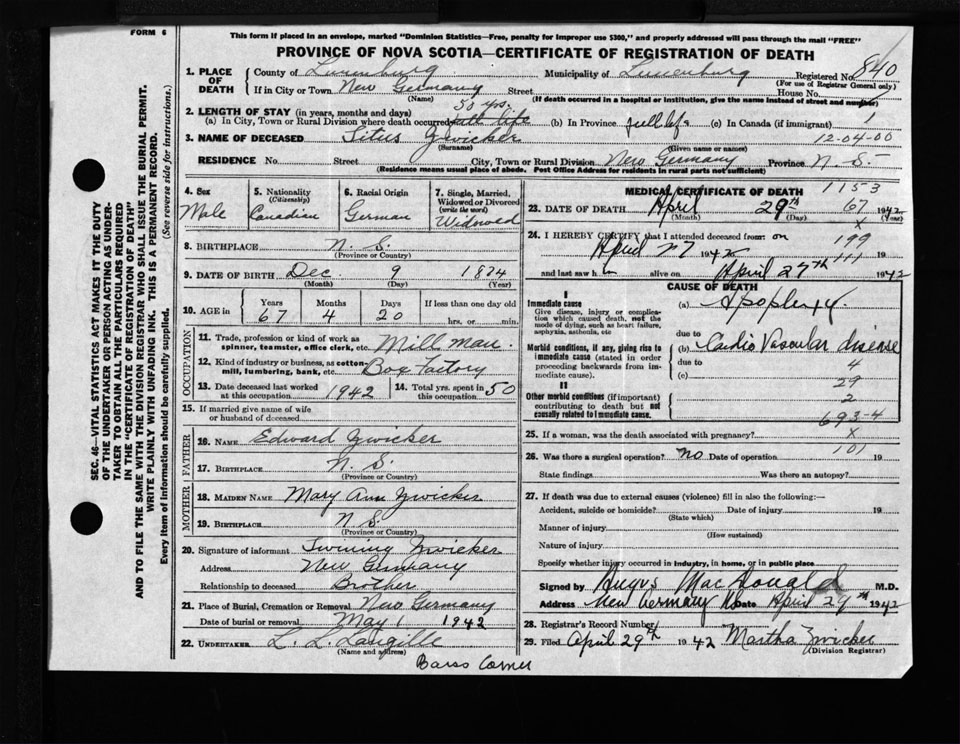 FORM 6
This form if placed in an envelope, marked "Dominion Statistics—Free, penalty for improper use $300," and properly addressed will pass through the mail "FREE"
PROVINCE OF NOVA SCOTIA—CERTIFICATE OF REGISTRATION OF DEATH
1. PLACE OF DEATH County of Lunenburg Municipality of Lunenburg Registered No. 840
(For use of Registrar General only)
If in City or Town New Germany Street House No.
(Name) (If death occurred in a hospital or institution, give the name instead of street and number)
2. LENGTH OF STAY (in years, months and days) 50 yrs.
(a) In City, Town or Rural Division where death occurred (b) In Province full life (c) In Canada (if immigrant) 1
3. NAME OF DECEASED Titus Zwicker 12-04-00
(Surname) (Given name or names)
RESIDENCE No. Street City, Town or Rural Division New Germany Province N.S.
(Residence means usual place of abode. Post Office Address for residents in rural parts not sufficient)
4. Sex Male
5. Nationality (Citizenship) Canadian
6. Racial Origin German
7. Single, Married, Widowed or Divorced (write the word) Widowed
8. BIRTHPLACE N. S.
(Province or Country)
9. DATE OF BIRTH Dec 9 1874
(Month) (Day) (Year)
10. AGE in Years 67 Months 4 Days 20 If less than one day old hrs. or min.
OCCUPATION
11. Trade, profession or kind of work as spinner, teamster, office clerk, etc. Mill man
12. Kind of industry or business, as cotton mill, lumbering, bank, etc. Box Factory
13. Date deceased last worked at this occupation 1942
14. Total yrs. spent in this occupation 50
15. If married give name of wife or husband of deceased
FATHER
16. NAME Edward Zwicker
17. BIRTHPLACE N. S.
(Province or Country)
MOTHER
18. MAIDEN NAME Mary Ann Zwicker
19. BIRTHPLACE N S
(Province or Country)
20. Signature of informant Twining Zwicker
Address New Germany
Relationship to deceased Brother
21. Place of Burial, Cremation or Removal New Germany
Date of burial or removal May 1 1942
22. UNDERTAKER L. L. Langille
(Name and address)
Barss Corner
MEDICAL CERTIFICATE OF DEATH 1153
23. DATE OF DEATH April 29th 67 1942
(Month) (Day) (Year)
x
24. I HEREBY CERTIFY that I attended deceased from: on 199
April 27 1942 to 111 19
and last saw h im alive on April 27th 1942
CAUSE OF DEATH
I
Immediate cause (a) Apoplexy
Give disease, injury or complication which caused death, not the mode of dying, such as heart failure, asphyxia, asthenia, etc
due to
Morbid conditions, if any, giving rise to immediate cause (stated in order proceeding backwards from immediate cause). (b) Cardio Vascular disease
due to 4
(c) 29
II
Other morbid conditions (if important) contributing to death but not causally related to immediate cause. 2
693-4
25. If a woman, was the death associated with pregnancy? x
101
26. Was there a surgical operation? No Date of operation 19
State findings Was there an autopsy?
27. If death was due to external causes (violence) fill in also the following:—
Accident, suicide or homicide? Date of injury 19
(State which)
Manner of injury
(How sustained)
Nature of injury
Specify whether injury occurred in industry, in home, or in public place
Signed by Angus MacDonald M.D.
Address New Germany NS Date April 29th 1942
28. Registrar's Record Number
29. Filed April 29th 1942 Martha Zwicker
(Division Registrar)
SEC. 46—VITAL STATISTICS ACT MAKES IT THE DUTY
OF THE UNDERTAKER OR PERSON ACTING AS UNDER-
TAKER TO OBTAIN ALL THE PARTICULARS REQUIRED
IN THE "CERTIFICATE OF REGISTRATION OF DEATH"
AND TO FILE THE SAME WITH THE DIVISION REGISTRAR WHO SHALL ISSUE THE BURIAL PERMIT.
WRITE PLAINLY WITH UNFADING INK. THIS IS A PERMANENT RECORD.
Every item of information should be carefully supplied. (See reverse side for instructions.)